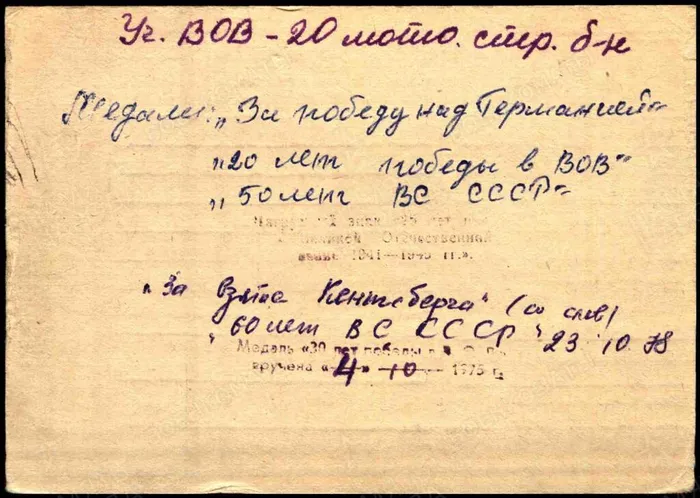 Уч. ВОВ - 20 мото. стр. б-н
Медали: „За победу над Германией"
„20 лет победы в ВОВ"
„50 лет ВС СССР"
Нагрудный знак «25 лет
Великой Отечественной
войне 1941—1945 гг.».
„За взтие Кенгсберга" (со слов)
„60 лет ВС СССР" 23 10 78
Медаль «30 лет победы в В. О. В.»
вручена «4» 10 1975 г.